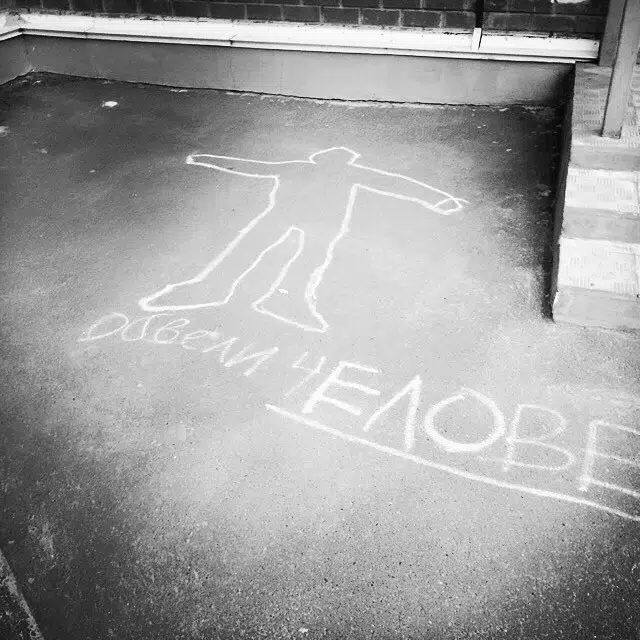 обвели ЧЕЛОВЕ